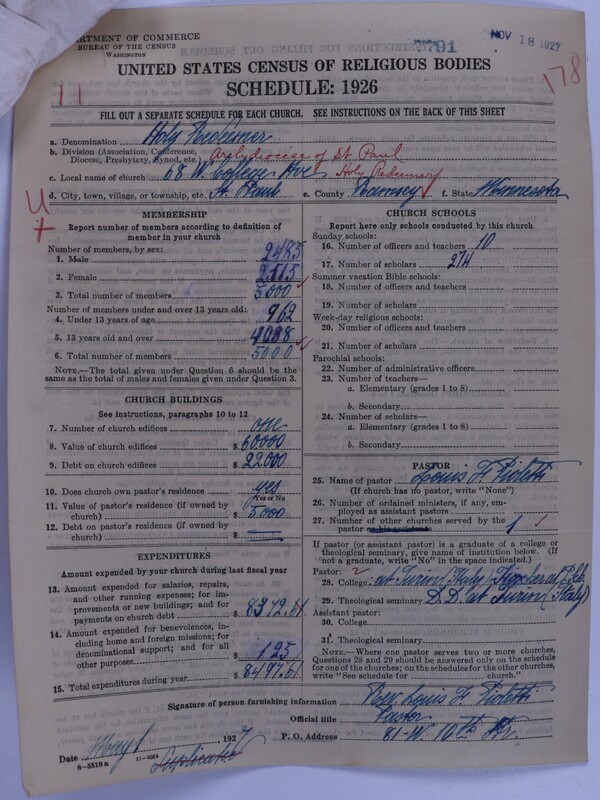 DEPARTMENT OF COMMERCE
BUREAU OF THE CENSUS
WASHINGTON
2791
NOV 18 1927
178
UNITED STATES CENSUS OF RELIGIOUS BODIES
SCHEDULE: 1926
11
FILL OUT A SEPARATE SCHEDULE FOR EACH CHURCH. SEE INSTRUCTIONS ON THE BACK OF THIS SHEET
a. Denomination Holy Redeemer
b. Division (Association, Conference, Diocese, Presbytery, Synod, etc.) Archdiocese of St Paul
c. Local name of church 68 W. College Ave Holy Redeemer
d. City, town, village, or township, etc. St. Paul e. County Ramsey f. State Minnesota
MEMBERSHIP
Report number of members according to definition of
member in your church
Number of members, by sex:
1. Male 2485
2. Female 2515
3. Total number of members 5000
Number of members under and over 13 years old:
4. Under 13 years of age 962
5. 13 years old and over 4038
6. Total number of members 5000
NOTE.—The total given under Question 6 should be
same as the total of males and females given under Question 3.
CHURCH BUILDINGS
See instructions, paragraphs 10 to 12
7. Number of church edifices one
8. Value of church edifices $ 60000
9. Debt on church edifices $ 22000
10. Does church own pastor's residence yes
Yes or No
11. Value of pastor's residence (if owned by
church) $ 5000
12. Debt on pastor's residence (if owned by
church) $
EXPENDITURES
Amount expended by your church during last fiscal year
13. Amount expended for salaries, repairs,
and other running expenses; for im-
provements or new buildings; and for
payments on church debt $ 8372.61
14. Amount expended for benevolences, in-
cluding home and foreign missions; for
denominational support; and for all
other purposes $ 125
15. Total expenditures during year $ 8497.61
CHURCH SCHOOLS
Report here only schools conducted by this church
Sunday schools:
16. Number of officers and teachers 10
17. Number of scholars 274
Summer vacation Bible schools:
18. Number of officers and teachers
19. Number of scholars
Week-day religious schools:
20. Number of officers and teachers
21. Number of scholars
Parochial schools:
22. Number of administrative officers
23. Number of teachers—
a. Elementary (grades 1 to 8)
b. Secondary
24. Number of scholars—
a. Elementary (grades 1 to 8)
b. Secondary
PASTOR
25. Name of pastor Louis F. Pioletti
(If church has no pastor, write "None")
26. Number of ordained ministers, if any, em-
ployed as assistant pastors
27. Number of other churches served by the
pastor 1
If pastor (or assistant pastor) is a graduate of a college or
theological seminary, give name of institution below. (If
not a graduate, write "No" in the space indicated.)
Pastor: 2
28. College: at Turin (Italy)
29. Theological seminary D.D. at Turin (Italy)
Assistant pastor:
30. College
31. Theological seminary
NOTE.—Where one pastor serves two or more churches,
Questions 28 and 29 should be answered only on the schedule
for one of the churches; on the schedules for the other churches,
write "See schedule for church."
Signature of person furnishing information Rev. Louis F. Pioletti
Official title Pastor
P. O. Address 81 W. 10th Str.
Date May 1 1927
8—5518a 11—9084 Duplicate